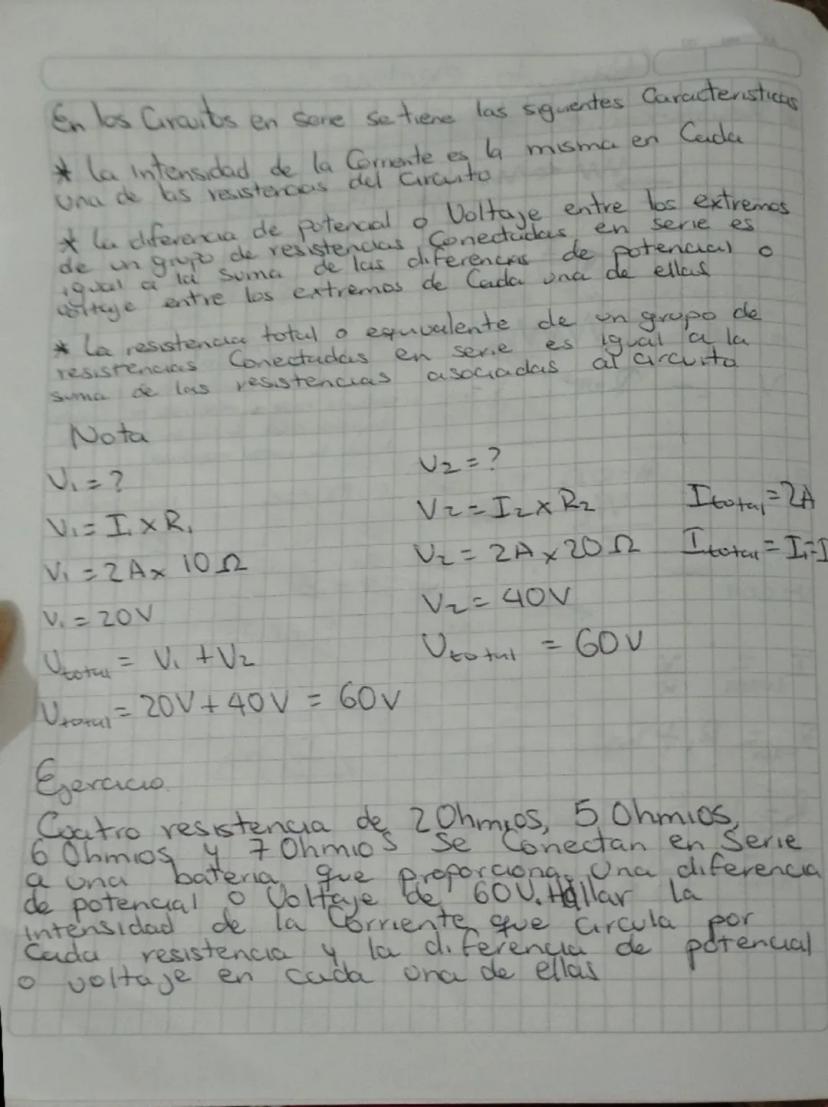 En los Circuitos en serie se tiene las siguientes Caracteristicas
* la intensidad de la Corriente es la misma en Cada
una de las resistencias del Circuito
* la diferencia de potencial o Voltaje entre los extremos
de un grupo de resistencias Conectadas en serie es
igual a la suma de las diferencias de potencial o
voltaje entre los extremos de Cada una de ellas
* la resistencia total o equivalente de un grupo de
resistencias Conectadas en serie es igual a la
suma de las resistencias asociadas al circuito
Nota
V₁ = ?
V₁ = I₁ x R₁
V₁ = 2A x 10Ω
V₁ = 20V
Vtotal = V₁ + V₂
Vtotal = 20V + 40V = 60V
V₂ = ?
V₂ = I₂ x R₂
V₂ = 2A x 20Ω
V₂ = 40V
Vtotal = 60V
Itotal = 2A
Itotal = I₁ =
Ejercicio
Cuatro resistencia de 2 Ohmios, 5 Ohmios,
6 Ohmios y 7 Ohmios Se Conectan en Serie
a una bateria que proporciona una diferencia
de potencial o Voltaje de 60V. Hallar la
intensidad de la Corriente que circula por
Cada resistencia y la diferencia de potencial
o voltaje en cada una de ellas